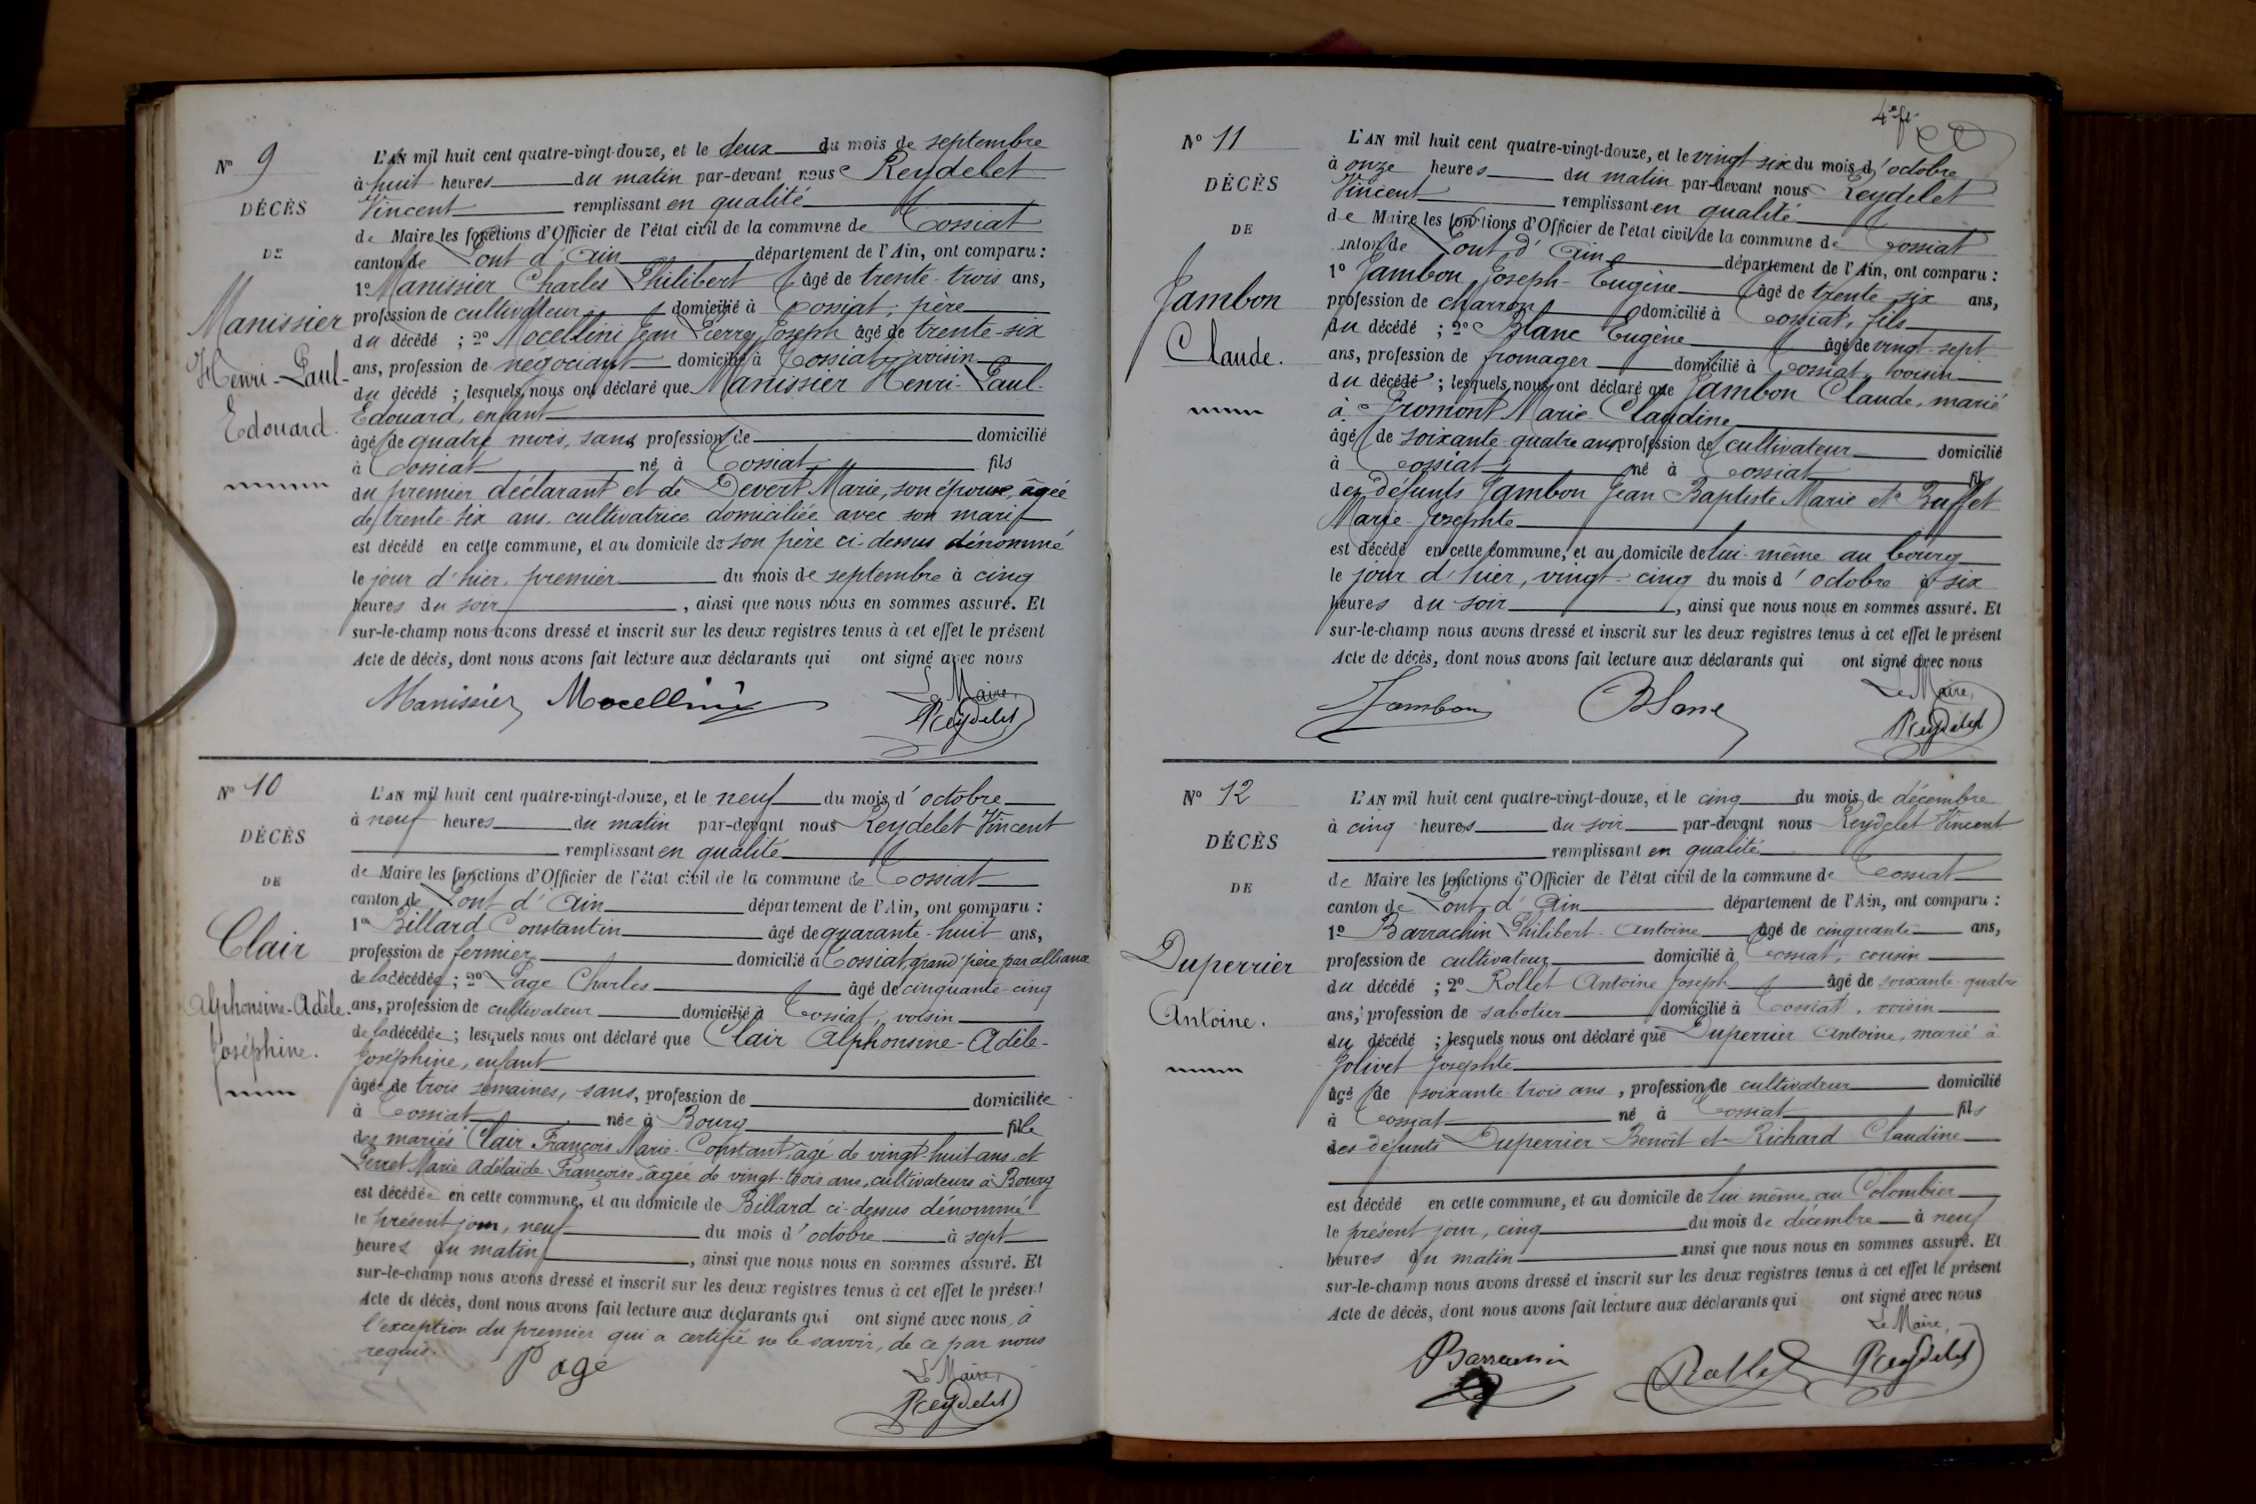 N° 9
DÉCÈS
DE
Manissier
Henri-Paul-
Edouard.
L'AN mil huit cent quatre-vingt-douze, et le deux du mois de septembre
à huit heures du matin par-devant nous Reydelet
Vincent remplissant en qualité
de Maire les fonctions d'Officier de l'état civil de la commune de Tossiat
canton de Pont d'Ain département de l'Ain, ont comparu :
1° Manissier Charles Philibert âgé de trente-trois ans,
profession de cultivateur domicilié à Tossiat, père
du décédé ; 2° Mocellini Jean Pierre Joseph âgé de trente-six
ans, profession de négociant domicilié à Tossiat, voisin
du décédé ; lesquels nous ont déclaré que Manissier Henri-Paul-
Edouard, enfant
âgé de quatre mois, sans profession de domicilié
à Tossiat né à Tossiat fils
du premier déclarant et de Devert Marie, son épouse, âgée
de trente-six ans, cultivatrice domiciliée avec son mari
est décédé en cette commune, et au domicile de son père ci-dessus dénommé
le jour d'hier, premier du mois de septembre à cinq
heures du soir, ainsi que nous nous en sommes assuré. Et
sur-le-champ nous avons dressé et inscrit sur les deux registres tenus à cet effet le présent
Acte de décès, dont nous avons fait lecture aux déclarants qui ont signé avec nous
Le Maire,
Manissier Mocellini Reydelet
N° 10
DÉCÈS
DE
Clair
Alphonsine-Adèle-
Joséphine.
L'AN mil huit cent quatre-vingt-douze, et le neuf du mois d'octobre
à neuf heures du matin par-devant nous Reydelet Vincent
remplissant en qualité
de Maire les fonctions d'Officier de l'état civil de la commune de Tossiat
canton de Pont d'Ain département de l'Ain, ont comparu :
1° Billard Constantin âgé de quarante-huit ans,
profession de fermier domicilié à Tossiat, grand'père par alliance
de la décédée ; 2° Page Charles âgé de cinquante-cinq
ans, profession de cultivateur domicilié à Tossiat, voisin
de la décédée ; lesquels nous ont déclaré que Clair Alphonsine-Adèle-
Joséphine, enfant
âgée de trois semaines, sans, profession de domiciliée
à Tossiat née à Bourg fille
des mariés Clair François Marie-Constant, âgé de vingt-huit ans, et
Perret Marie Adélaïde Françoise, âgée de vingt-trois ans, cultivateurs à Bourg
est décédée en cette commune, et au domicile de Billard ci-dessus dénommé
le présent jour, neuf du mois d'octobre à sept
heures du matin, ainsi que nous nous en sommes assuré. Et
sur-le-champ nous avons dressé et inscrit sur les deux registres tenus à cet effet le présent
Acte de décès, dont nous avons fait lecture aux déclarants qui ont signé avec nous, à
l'exception du premier qui a certifié ne le savoir, de ce par nous
requis.
Le Maire,
Page Reydelet
4e ft
N° 11
DÉCÈS
DE
Jambon
Claude.
L'AN mil huit cent quatre-vingt-douze, et le vingt six du mois d'octobre
à onze heures du matin par-devant nous Reydelet
Vincent remplissant en qualité
de Maire les fonctions d'Officier de l'état civil de la commune de Tossiat
canton de Pont d'Ain département de l'Ain, ont comparu :
1° Jambon Joseph-Eugène âgé de trente six ans,
profession de charron domicilié à Tossiat, fils
du décédé ; 2° Blanc Eugène âgé de vingt-sept
ans, profession de fromager domicilié à Tossiat, voisin
du décédé ; lesquels nous ont déclaré que Jambon Claude, marié
à Fromont Marie-Claudine
âgé de soixante-quatre ans, profession de cultivateur domicilié
à Tossiat né à Tossiat fils
des défunts Jambon Jean Baptiste Marie et Buffet
Marie-Josephte
est décédé en cette commune, et au domicile de lui-même au bourg
le jour d'hier, vingt-cinq du mois d'octobre à six
heures du soir, ainsi que nous nous en sommes assuré. Et
sur-le-champ nous avons dressé et inscrit sur les deux registres tenus à cet effet le présent
Acte de décès, dont nous avons fait lecture aux déclarants qui ont signé avec nous
Le Maire,
Jambon Blanc Reydelet
N° 12
DÉCÈS
DE
Duperrier
Antoine.
L'AN mil huit cent quatre-vingt-douze, et le cinq du mois de décembre
à cinq heures du soir par-devant nous Reydelet Vincent
remplissant en qualité
de Maire les fonctions d'Officier de l'état civil de la commune de Tossiat
canton de Pont d'Ain département de l'Ain, ont comparu :
1° Barrachin Philibert-Antoine âgé de cinquante ans,
profession de cultivateur domicilié à Tossiat, cousin
du décédé ; 2° Rollet Antoine Joseph âgé de soixante-quatre
ans, profession de sabotier domicilié à Tossiat, voisin
du décédé ; lesquels nous ont déclaré que Duperrier Antoine, marié à
Jolivet Josephte
âgé de soixante-trois ans, profession de cultivateur domicilié
à Tossiat né à Tossiat fils
des défunts Duperrier Benoît et Richard Claudine
est décédé en cette commune, et au domicile de lui-même au Colombier
le présent jour, cinq du mois de décembre à neuf
heures du matin ainsi que nous nous en sommes assuré. Et
sur-le-champ nous avons dressé et inscrit sur les deux registres tenus à cet effet le présent
Acte de décès, dont nous avons fait lecture aux déclarants qui ont signé avec nous
Le Maire,
Barrachin Rollet Reydelet